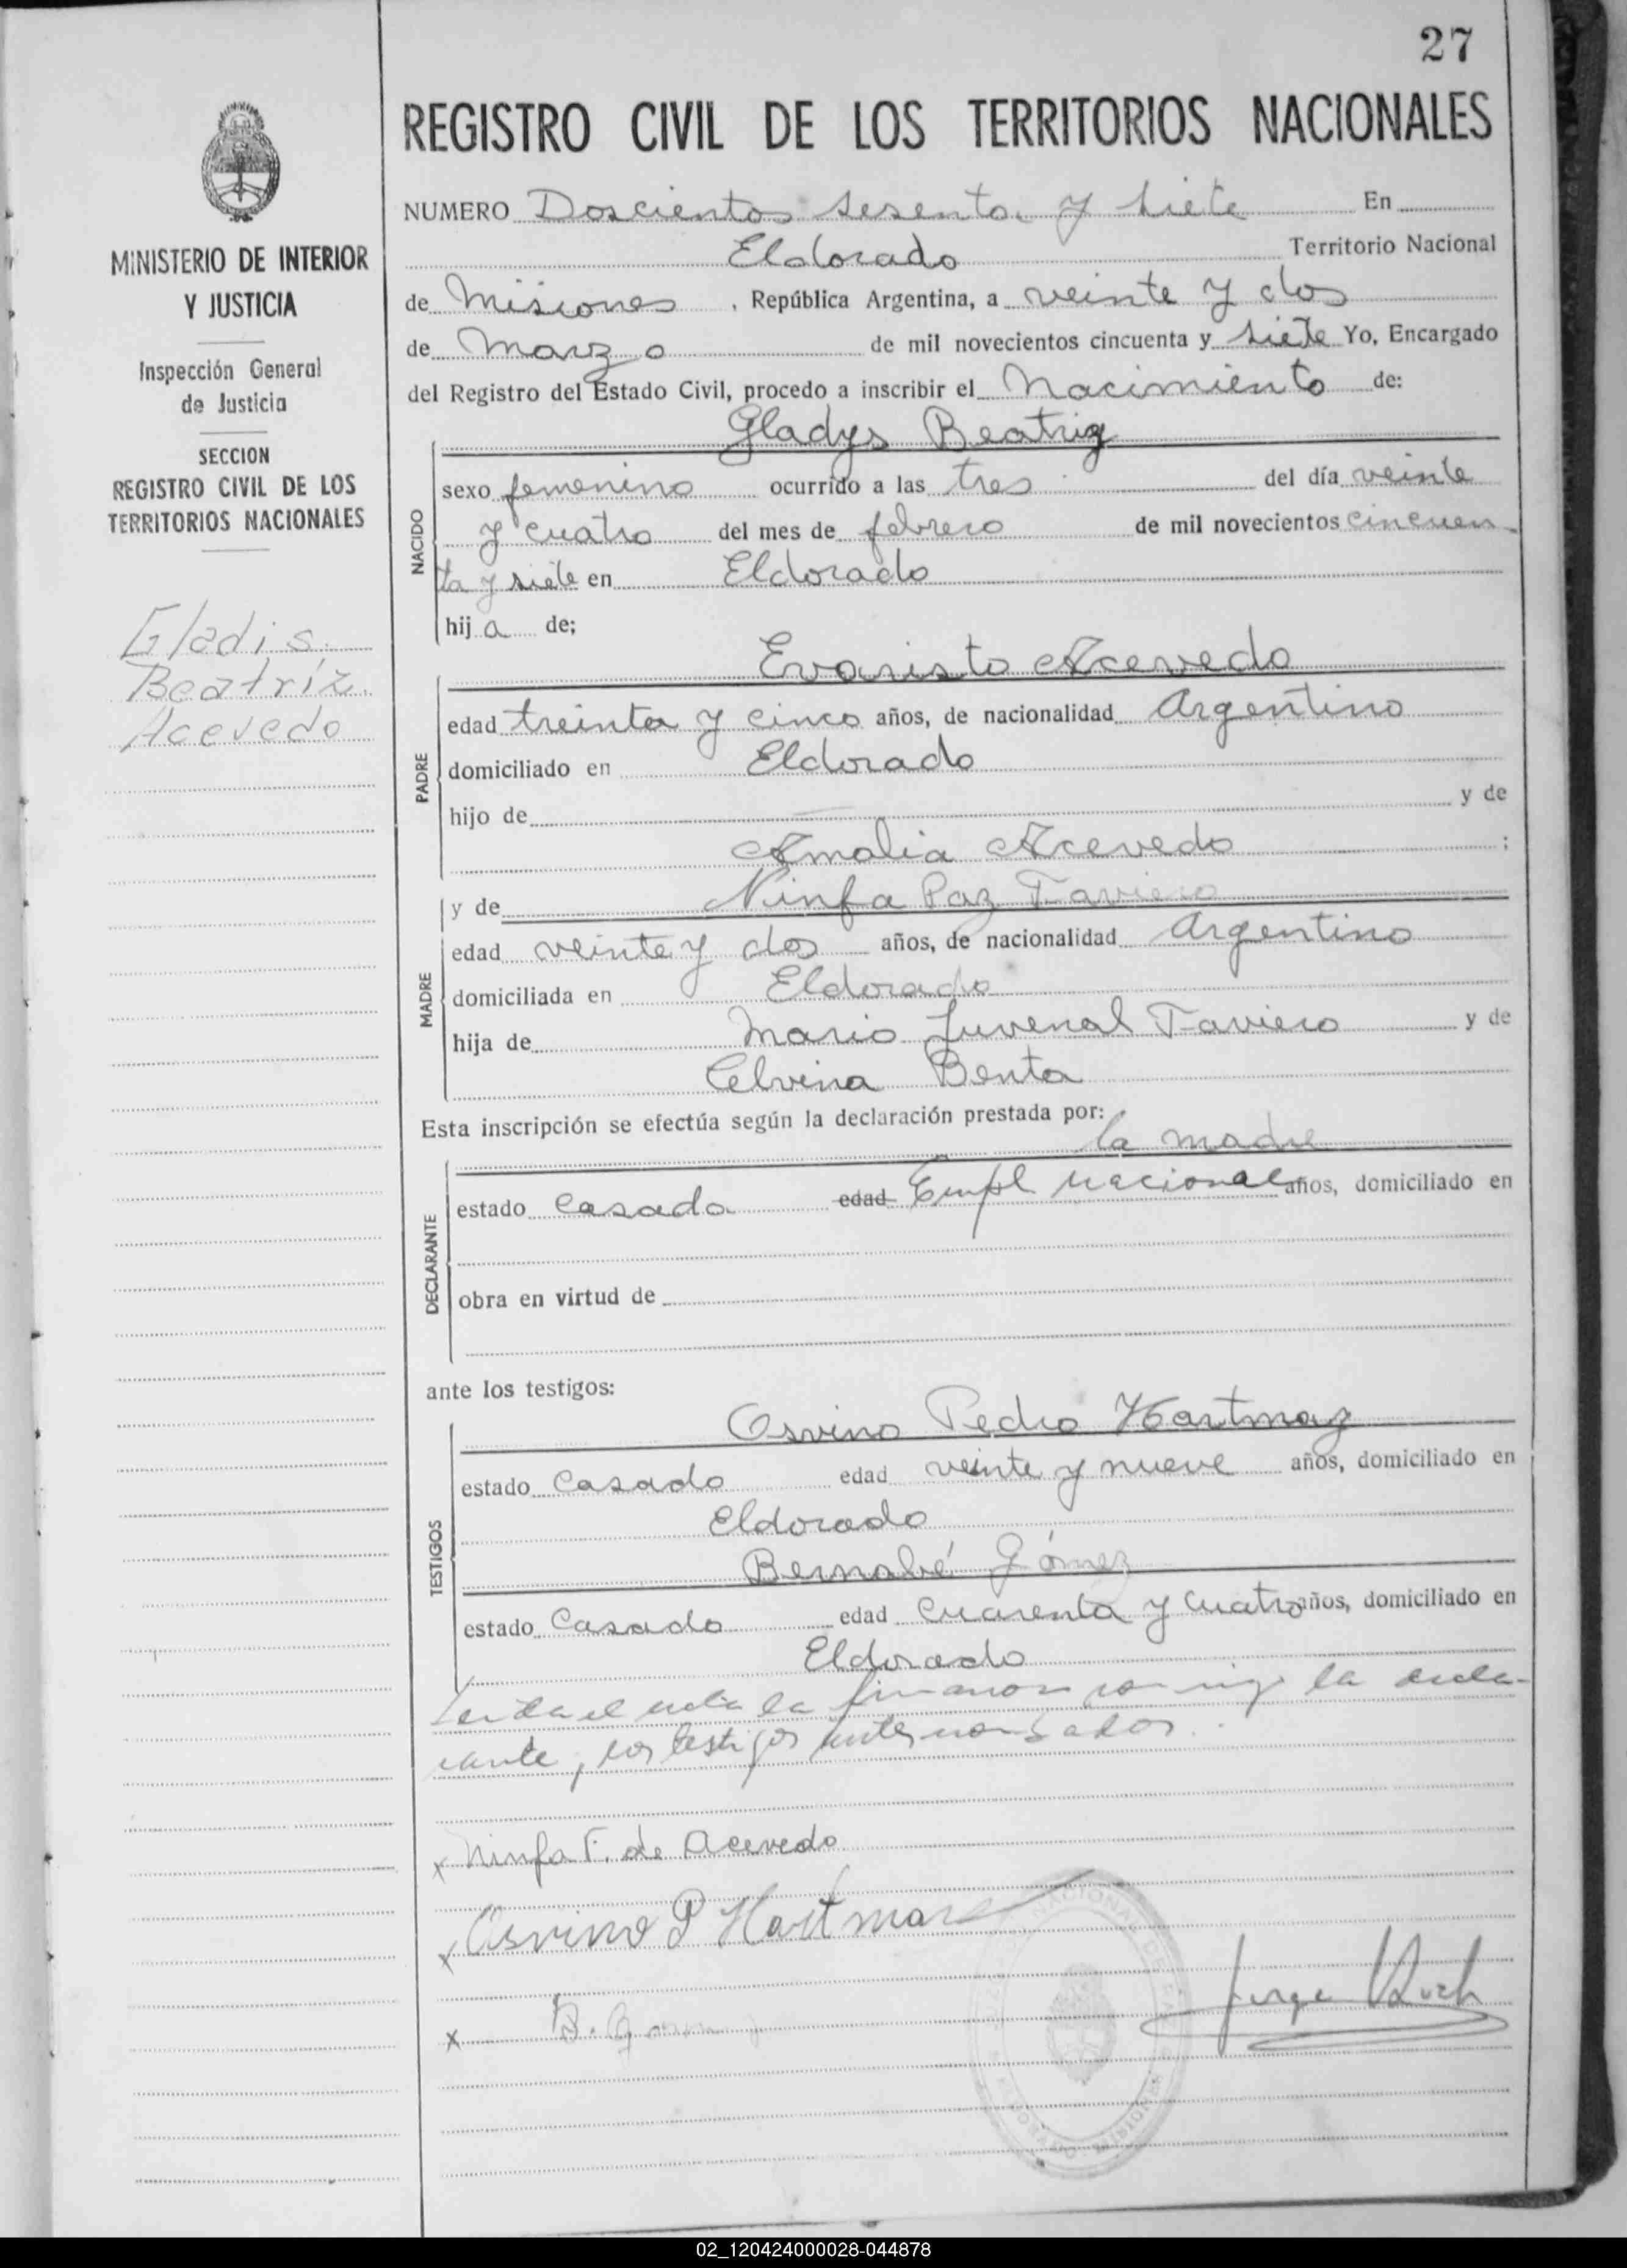 27
REGISTRO CIVIL DE LOS TERRITORIOS NACIONALES
MINISTERIO DE INTERIOR
Y JUSTICIA
Inspección General
de Justicia
SECCION
REGISTRO CIVIL DE LOS
TERRITORIOS NACIONALES
Gladis
Beatríz
Acevedo
NUMERO Doscientos sesenta y siete En
Eldorado Territorio Nacional
de Misiones, República Argentina, a veinte y dos
de Marzo de mil novecientos cincuenta y siete Yo, Encargado
del Registro del Estado Civil, procedo a inscribir el Nacimiento de:
Gladys Beatriz
NACIDO
sexo femenino ocurrido a las tres del día veinte
y cuatro del mes de febrero de mil novecientos cincuen
ta y siete en Eldorado
hija de;
Evaristo Acevedo
PADRE
edad treinta y cinco años, de nacionalidad Argentino
domiciliado en Eldorado
hijo de — y de
Amalia Acevedo ;
y de Ninfa Paz Taviero
MADRE
edad veinte y dos años, de nacionalidad Argentino
domiciliada en Eldorado
hija de Mario Juvenal Taviero y de
Celvina Benta
Esta inscripción se efectúa según la declaración prestada por:
la madre
DECLARANTE
estado casada edad Empl nacional años, domiciliado en
obra en virtud de
ante los testigos:
Osvino Pedro Hartmaz
TESTIGOS
estado Casado edad veinte y nueve años, domiciliado en
Eldorado
Bernabé Gómez
estado Casado edad Cuarenta y cuatro años, domiciliado en
Eldorado
Leida el acta la firmaron conmigo la decla-
rante, los testigos antes nombrados.
x Ninfa T. de Acevedo
x Osvino P Hartman
Jorge
x B. Gomez
02_120424000028-044878